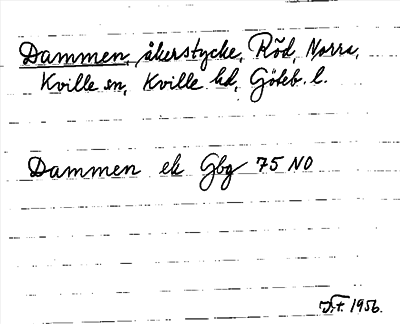 Dammen, åkerstycke, Röd, Norra,
Kville sn, Kville hd, Göteb. l.
Dammen ek Gbg 75 NO
1956.